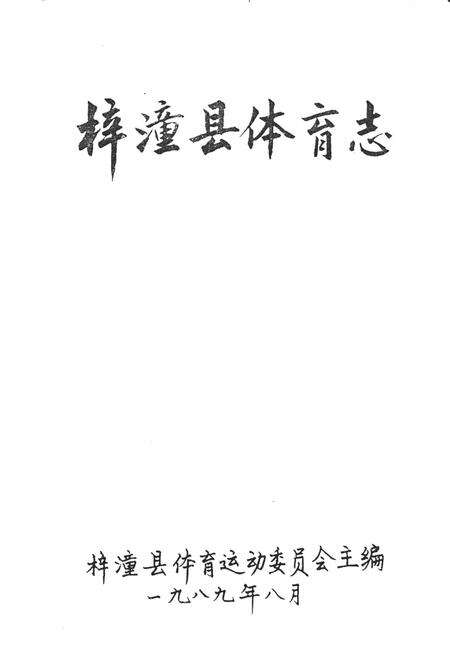 梓潼县体育志
梓潼县体育运动委员会主编
一九八九年八月